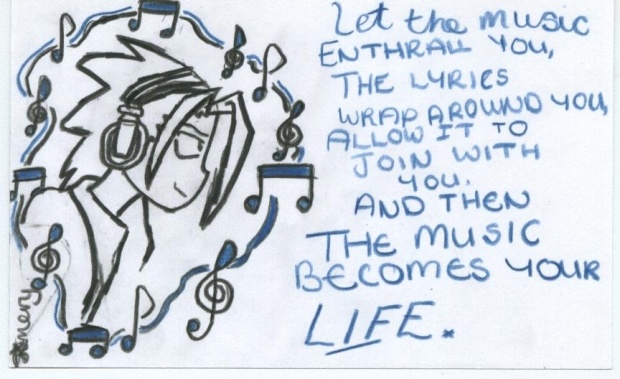 Let the music
ENTHRALL YOU,
THE LYRICS
WRAP AROUND YOU,
ALLOW IT TO
JOIN WITH
YOU.
AND THEN
THE MUSIC
BECOMES YOUR
LIFE.